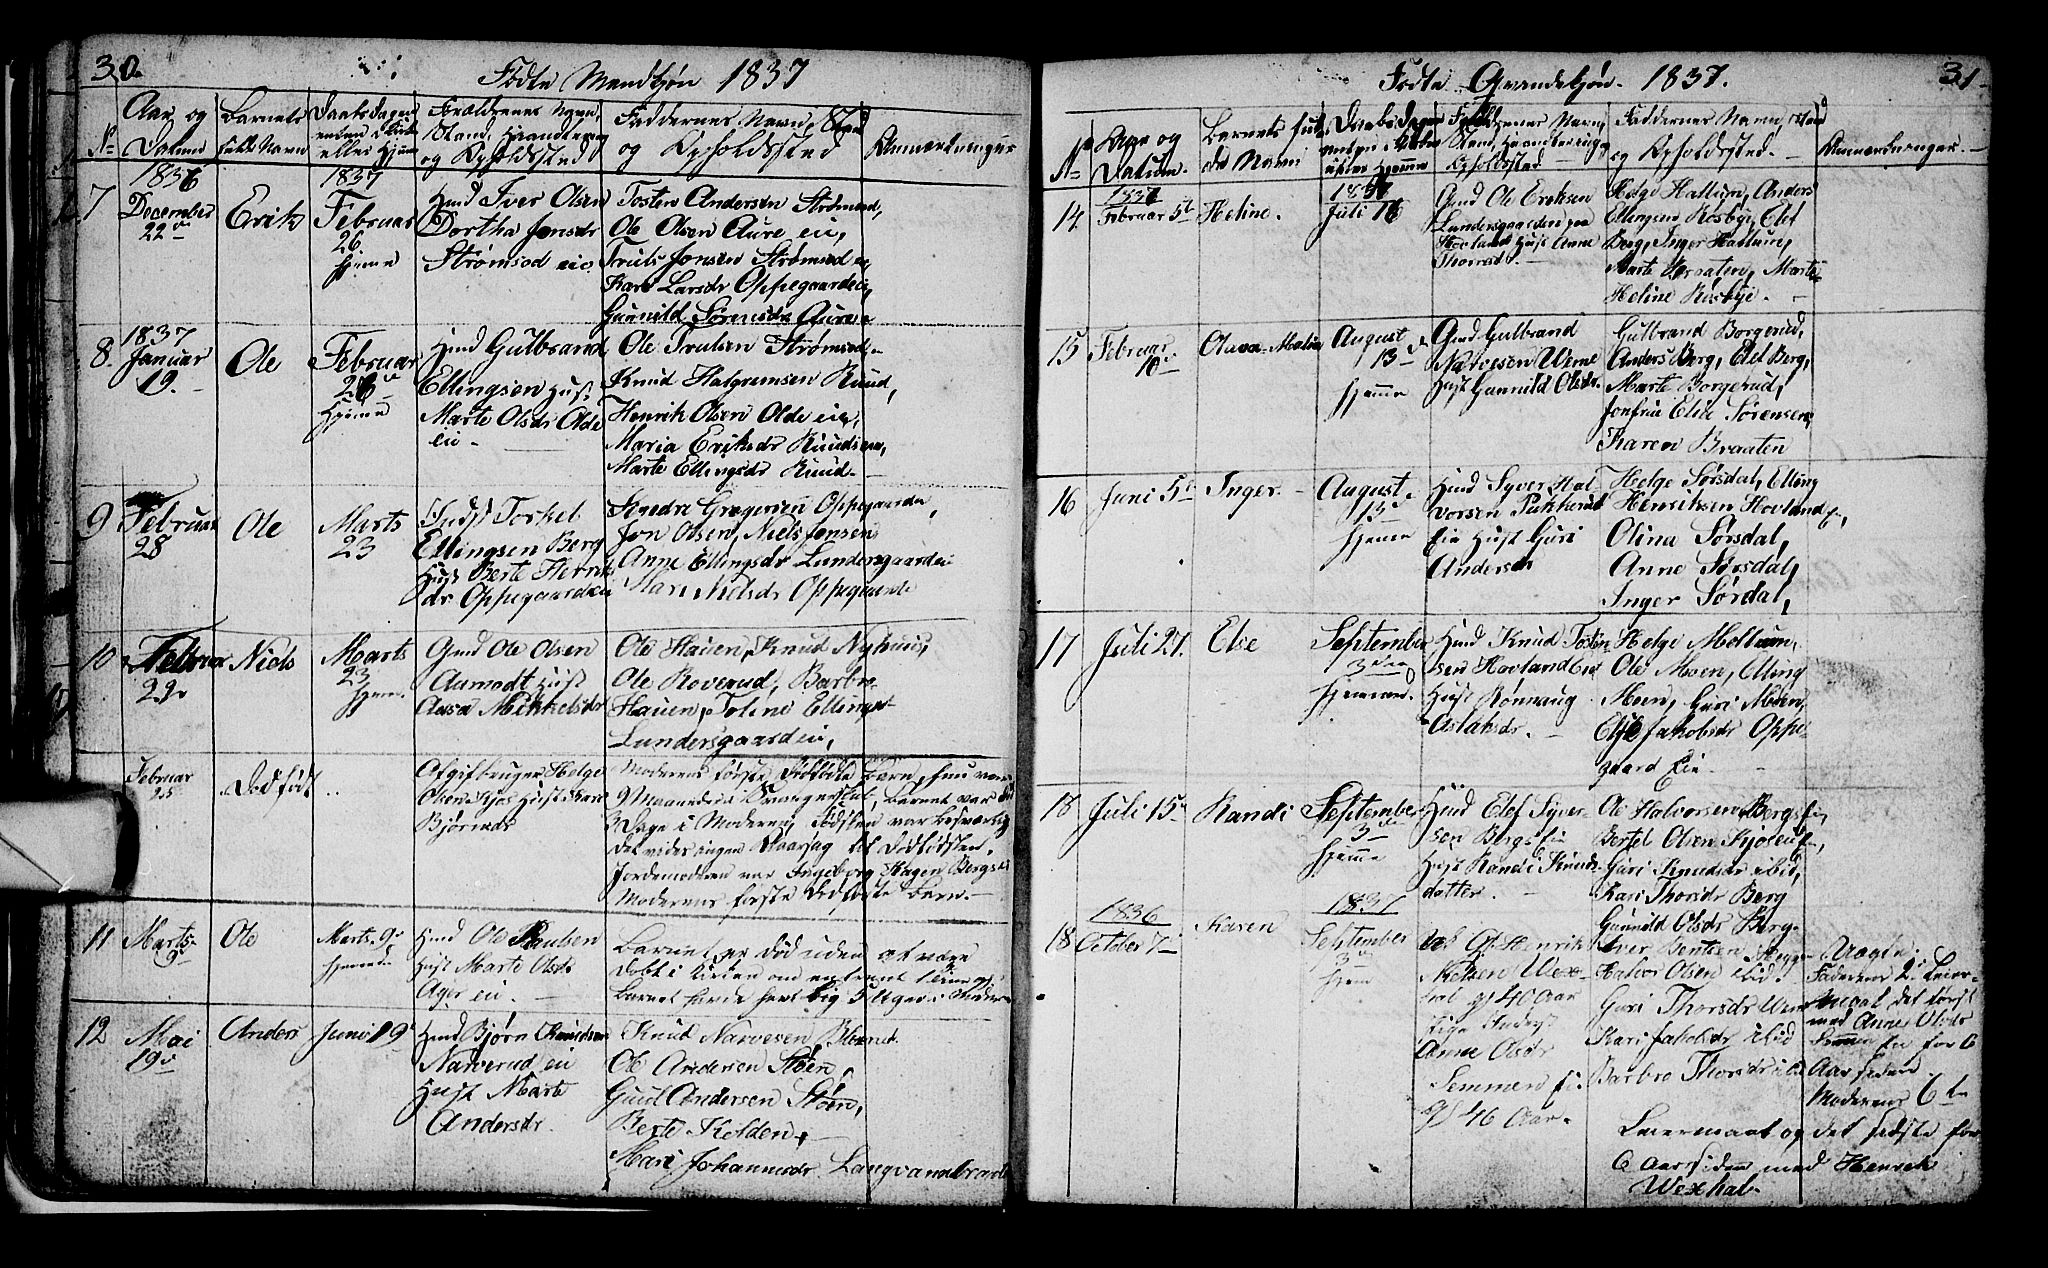 30
Födte Mandkjøn 1837
No
Aar og
Datum
Barnets
fulde Navn
Daabsdagen
enten i Kirke
eller Hjeme
Forældrenes Navn,
Stand, Haandtering
og Opholdssted
Faddernes Navn, Stand
og Opholdssted
Anmerkninger
7
1836
December
22de
Erik
1837
Februar
26
hjeme
Hmd Iver Olsen
Dorthe Jonsdr
Strømsod eie
Tosten Andersen Strømsod,
Ole Olsen Aure eie,
Truls Jonsen Strømsod e
Kari Larsdr Oppegaardeie,
Gunnild Sørensdr Aure e
8.
1837
Januar
19.
Ole
Februar
26
Hjeme
Hmd Gulbrand
Ellingsen Hust
Marte Olsdr Olde
eie
Ole Trulsen Strømsod
Knud Halgrumsen Ruud,
Henrik Olsen Olde eie,
Maria Eriksdr Ruudseie,
Marte Ellingsdr Ruud
9
Februar
28
Ole
Marts
23
Indst Torkel
Ellingsen Berg
Hust Berte Henrik
dr Oppegaardeie
Gregersen Oppegaardeie
Jon Olsen, Niels Jonsen
Anne Ellingsdr Lundersgaardeie
Mari Nielsdr Oppegaarde
10
Februar
23
Niels
Marts
23
hjeme
Gmd Ole Olsen
Aamodt Hust
Aasa Mikkelsdr
Ole Hauen, Knud Nyhuus,
Ole Roverud, Barbro
Hauen, Toline Ellings
Lundersgaardeie,
Februar
25
Dødfødt
Afgifbruger Helge
Olsen Kjos Hust Kari
Bjørnsdr
Moderens første Dødfødte Barn, hun var
9 Maaneders Svangerskab, Barnet var død
3 Dage i Moderen, Fødslen var besværlig
det vides ingen Aarsag til Dødfødslen.
Jordemoderen var Ingeborg Hagen Bergseie
Moderens første Dødfødte Barn
11
Marts
9
Ole
Marts 9
hjeme
Hmd Ole Paulsen
Hust Marte Olsdr
Ager eie
Barnet er død uden at være
Døbt i Kirken om
Barnet havde
12
Mai
19de
Anders
Juni 19
Hmd Bjørn Knudsen
Narverud eie
Hust Marte
Andersdr
Knud Narvesen
Ole Andersen Støen,
Guul Andersen Støen,
Berte Kolden,
Mari Johannesdr Langvandbraate
31
Födte Qvindekjøn 1837.
No
Aar og
Datum
Barnets ful-
de Navn
Daabs Dagen
enten i Kirken
eller Hjemme
Forældrenes Navn,
Stand, Haandtering og
Opholdssted
Faddernes Navn, Stand
og Opholdssted
Anmerkninger
14
1837
Februar 5te
Heline.
1837
Juli 16
Gmd Ole Eriksen
Lundersgaarden paa
Hovland Hust Anne
Thorsdr
Helge Hallum, Anders
Ellingsen Rosbye, Elef
Berg, Inger Hallum,
Marte Braaten, Marte
Heline Rosbye
15
Februar
10
Olava Malia
August
13
hjeme
Gmd Gulbrand
Narvesen Werne
Hust Gunnild Olsdr
Gulbrand Borgerud,
Anders Berg, Elef Berg,
Marte Borgerud,
Jomfrue Elen Sørensen,
Karen Braaten
16
Juni 5te
Inger
August
13
hjeme
Hmd Syver Hal
vorsen Pukkerud
Eie Hust Guri
Andersdr
Helge Sørsdal, Elling
Henriksen Hovland E,
Olina Sørsdal,
Anne Sørsdal,
Inger Sørdal,
17
Juli 27.
Else
September
3die
hjemme
Hmd Knud Tosten
sen Hovland Eie
Hust Rønnaug
Aslaksdr
Helge Moltum
Ole Moen, Elling
Moen, Guri Moen,
Else Jakobsdr Oppe
gaard Eie
18
Juli 15
Randi
September
3
hjeme
Hmd Elef Syver-
sen Bergs Eie
Hust Randi Knuds
datter
Ole Halvorsen Bergs Eie,
Bertel Olsen Kjøseie,
Guri Knudsdr ibid,
Kari Thorsdr Berg
Gunnild Olsdr Berg
18
1836
October 7
Karen
1837
September
3
hjem
Henrik
Nielsen Wex-
hal 40 Aar
Pige
Anne Olsdr
Semmen Eie
46 Aar
Iver Bentsen
Halvor Olsen ibid
Guri Thorsdr
Kari Jakobsdr ibid
Barbro Thorsdr ibid
Uægte
Faderens 2. Leier-
maal det først
med Anne Olsdr
Semmen Eie for 6
Aar siden
Moderens 6te
Leiermaal og det sidste for
6 Aar siden med Henrik
Wexhal